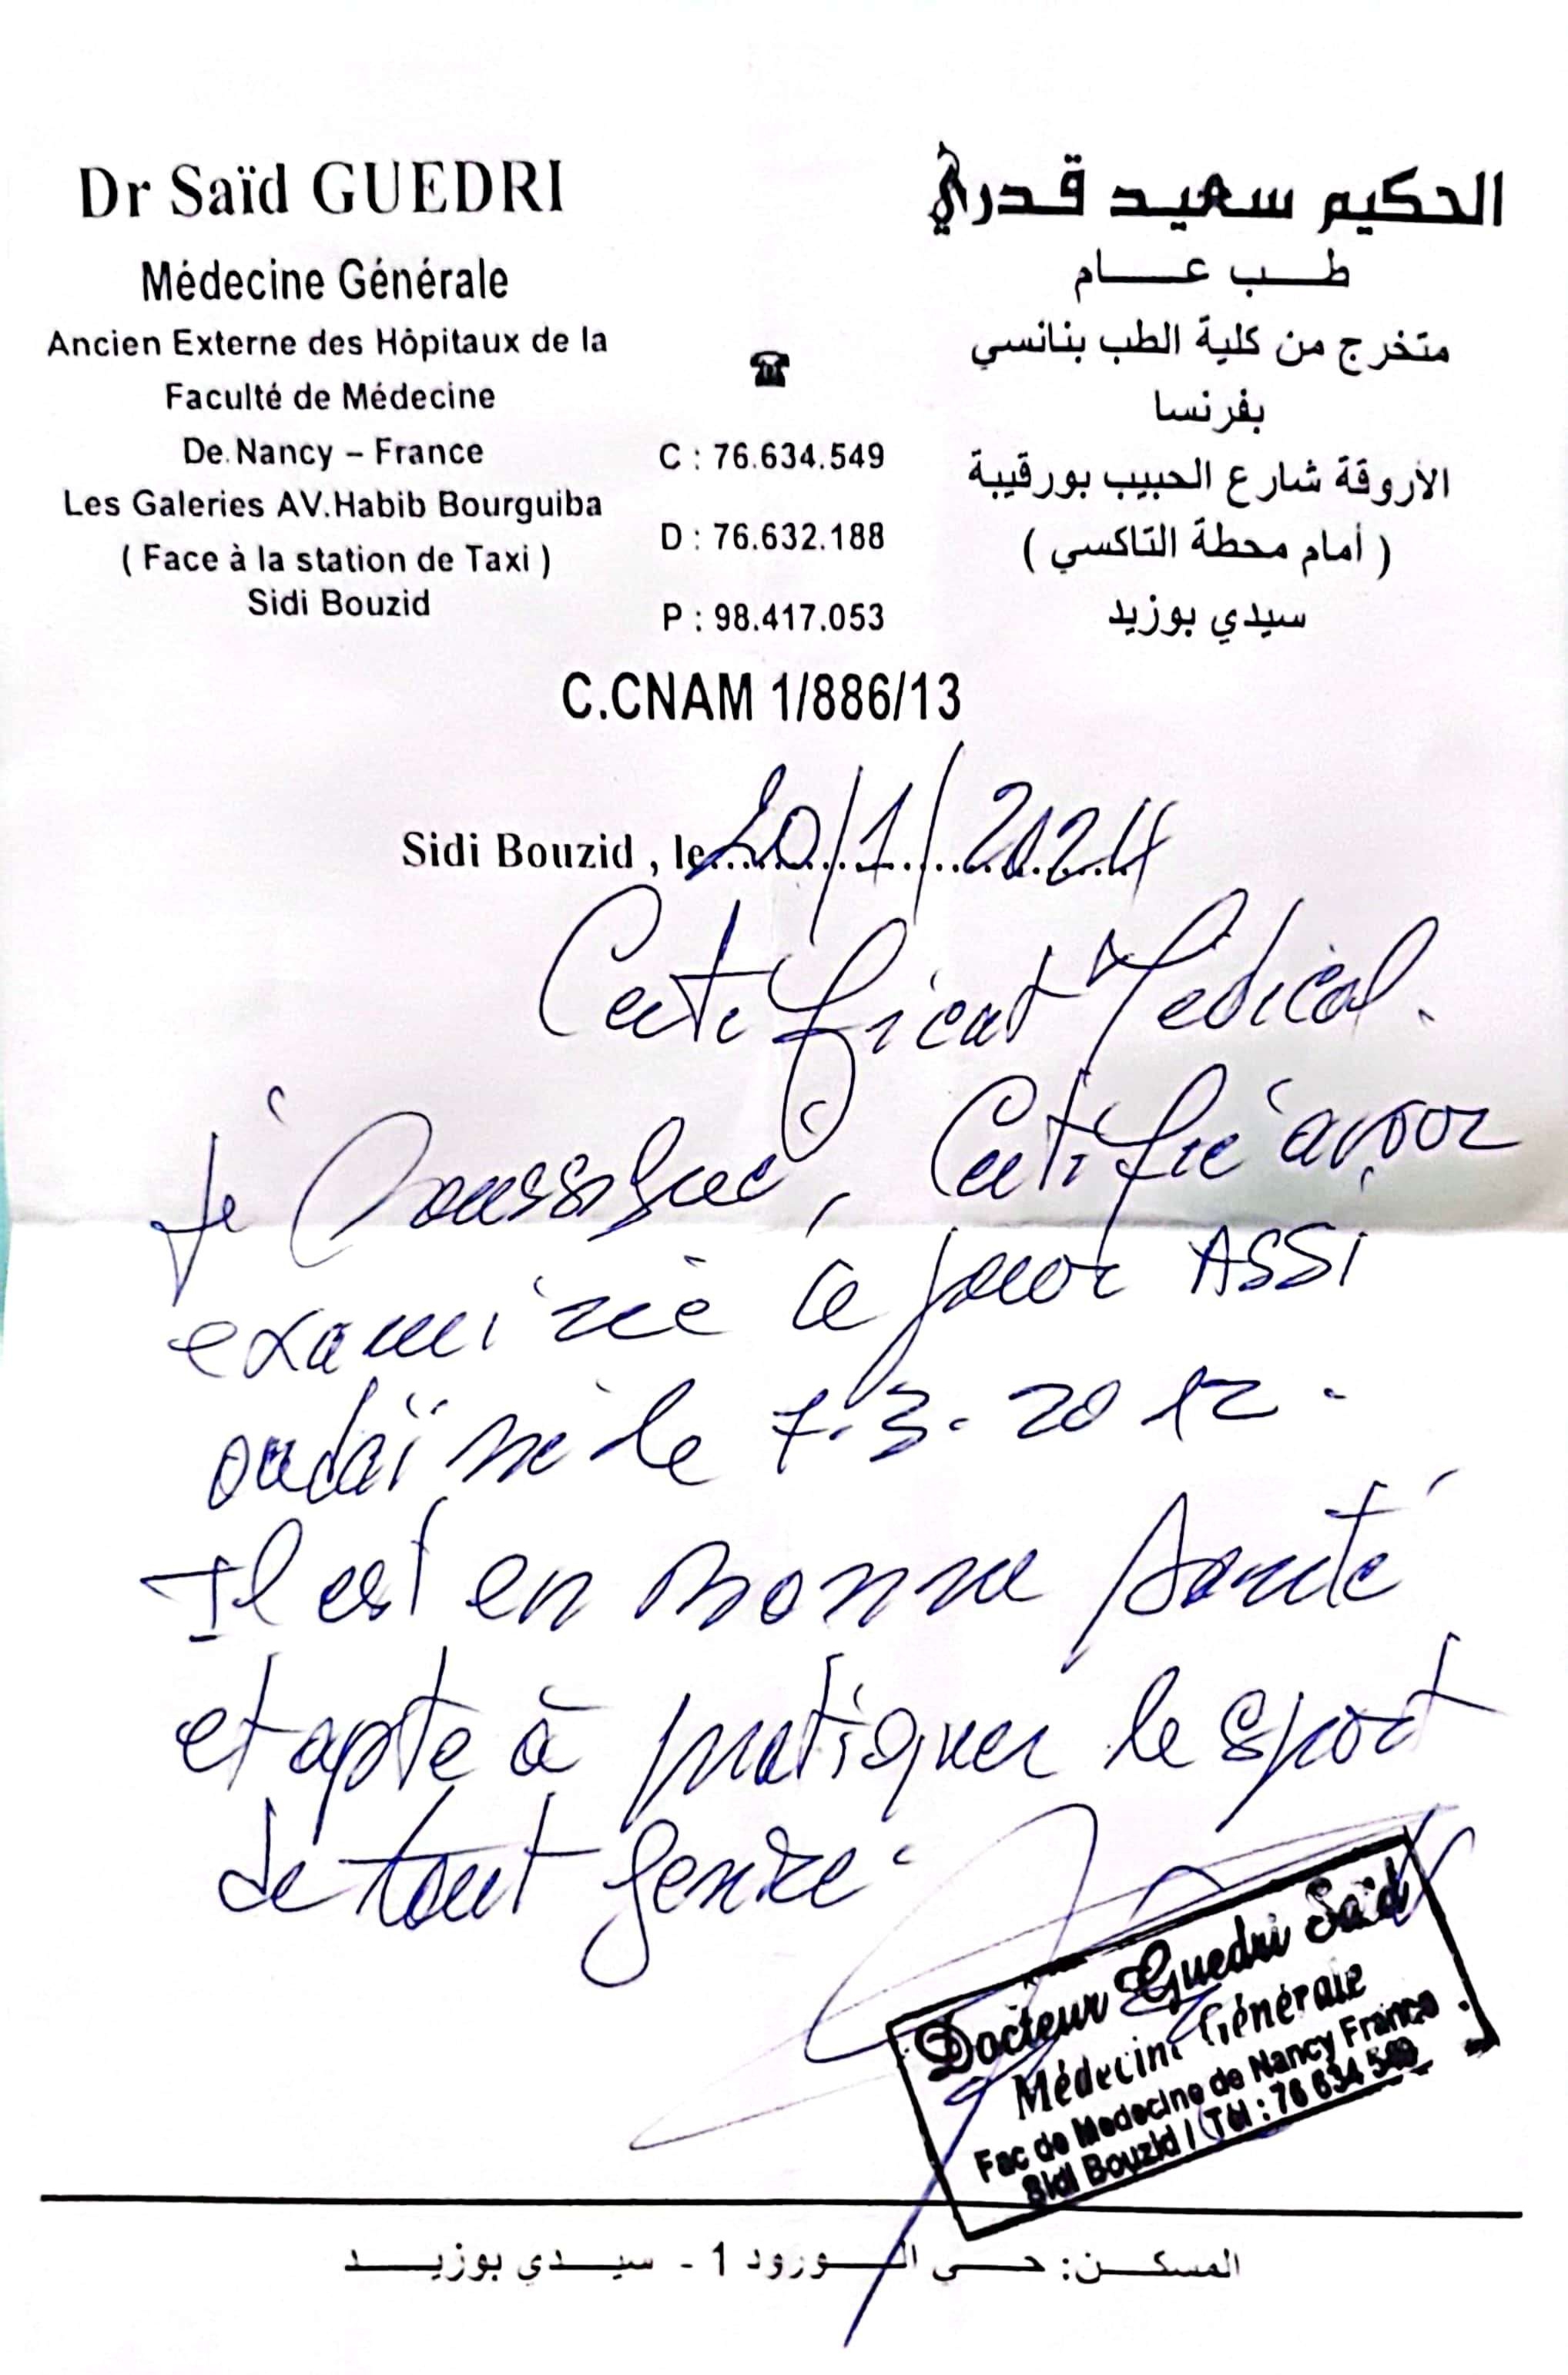 Dr Saïd GUEDRI
Médecine Générale
Ancien Externe des Hôpitaux de la
Faculté de Médecine
De Nancy – France
Les Galeries AV.Habib Bourguiba
( Face à la station de Taxi )
Sidi Bouzid
☎
C : 76.634.549
D : 76.632.188
P : 98.417.053
الحكيم سعيد قدري
طب عام
متخرج من كلية الطب بنانسي
بفرنسا
الأروقة شارع الحبيب بورقيبة
( أمام محطة التاكسي )
سيدي بوزيد
C.CNAM 1/886/13
Sidi Bouzid , le 20/1/2024
Certificat Médical.
Je Soussigné, Certifie avoir
examiné ce jour ASSI
oudaï né le 7.3.2012.
Il est en bonne santé
et apte à pratiquer le sport
de tout genre.
Docteur Guedri Saïd
Médecine Générale
Fac de Medecine de Nancy France
Sidi Bouzid / Tél : 76 634 549
المسكن: حي الورود 1 - سيدي بوزيد